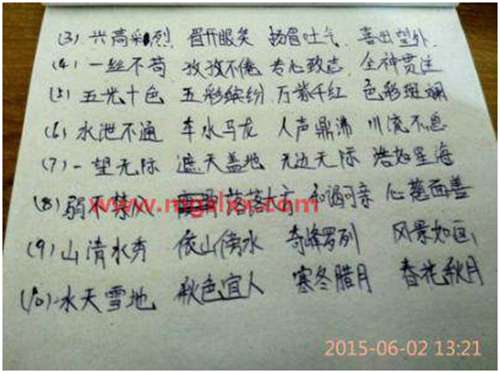 (3) 兴高采烈 眉开眼笑 扬眉吐气 喜出望外
(4) 一丝不苟 孜孜不倦 专心致志 全神贯注
(5) 五光十色 五彩缤纷 万紫千红 色彩斑斓
(6) 水泄不通 车水马龙 人声鼎沸 川流不息
(7) 一望无际 遮天盖地 无边无际 浩如星海
(8) 弱不禁风 落落大方 和谒可亲 心慈面善
(9) 山清水秀 依山傍水 奇峰罗列 风景如画
(10) 水天雪地 秋色宜人 寒冬腊月 春花秋月
2015-06-02 13:21